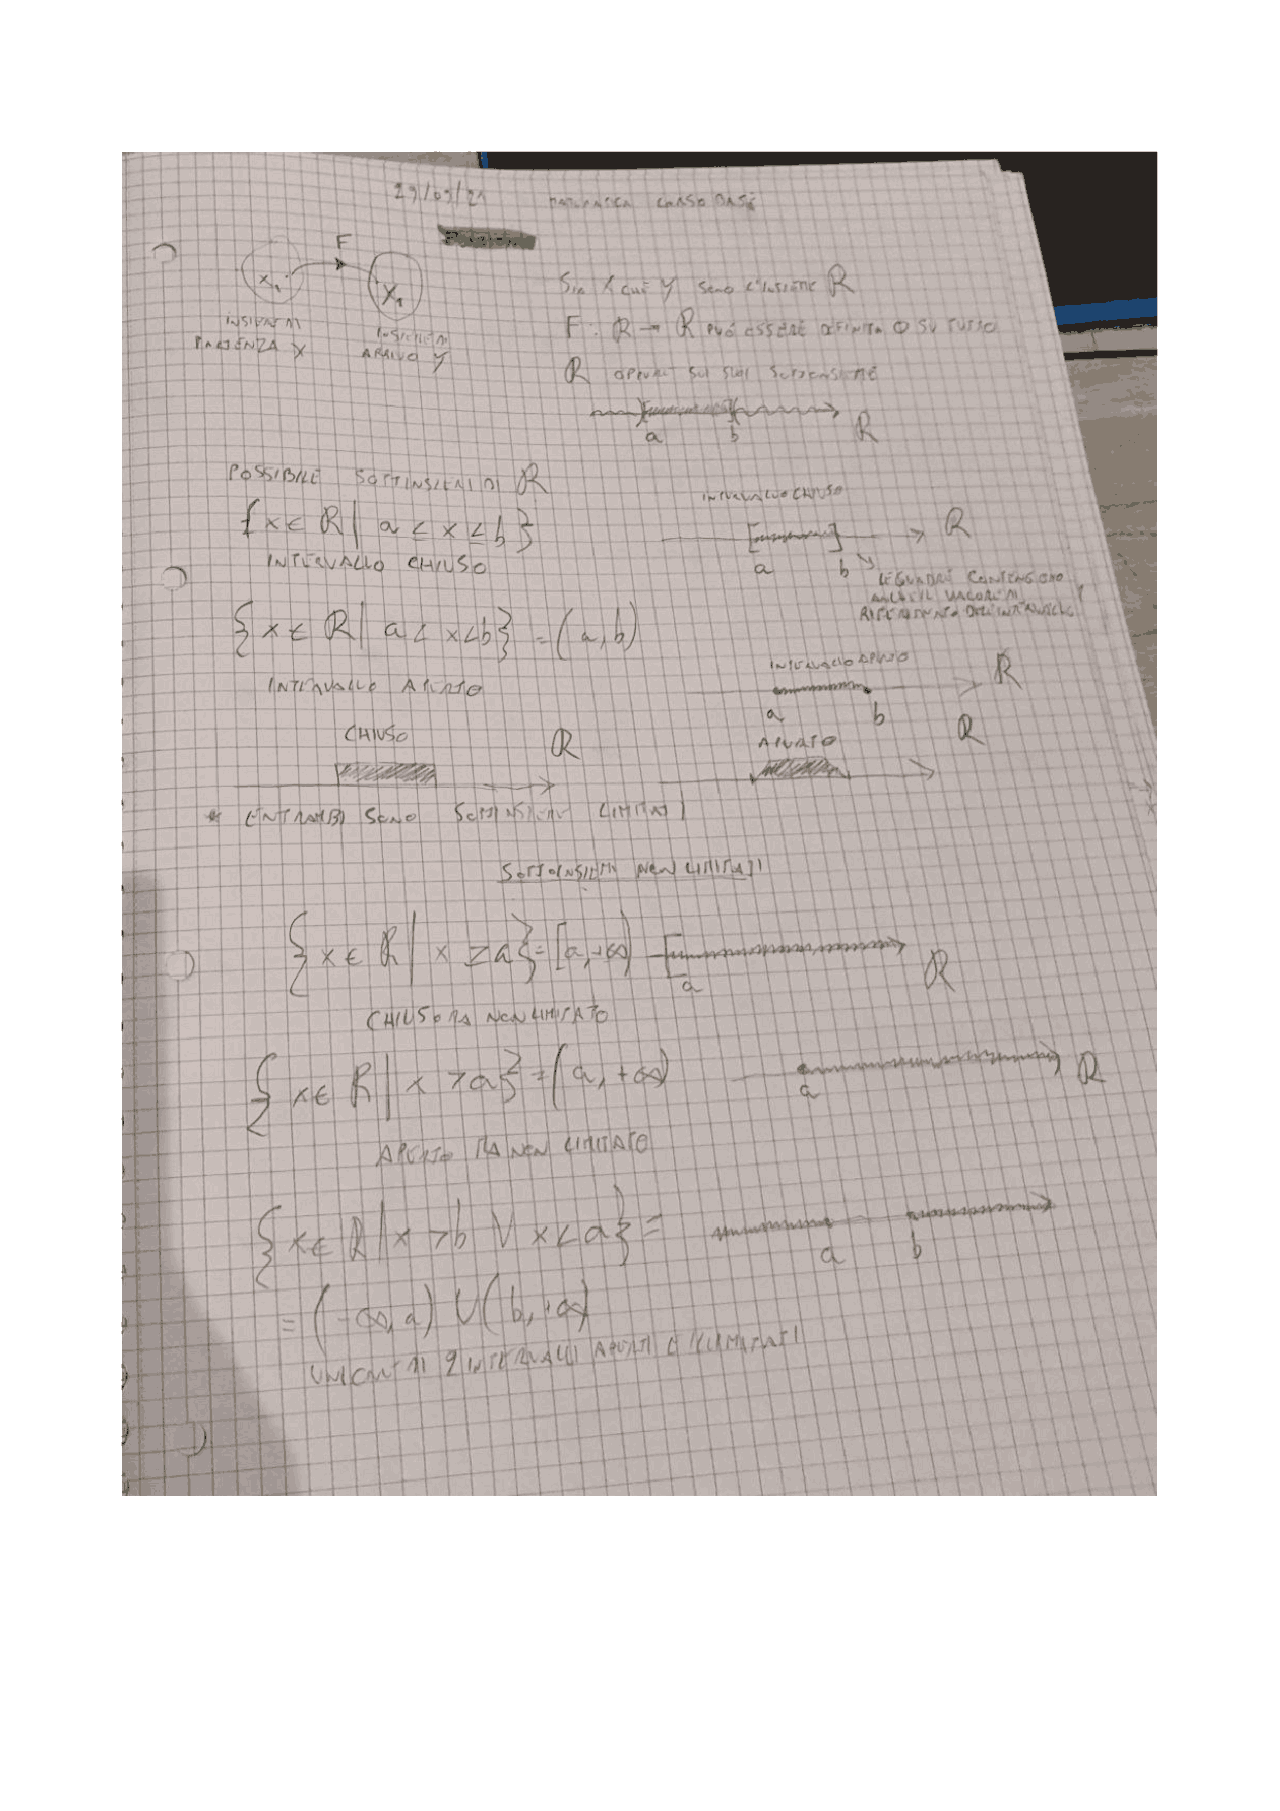 29/09/21 MATEMATICA CORSO BASE
F
X₁ X₁
INSIEME DI PARTENZA X
INSIEME DI ARRIVO Y
SIA X CHE Y SONO L'INSIEME ℝ
F : ℝ → ℝ PUÒ ESSERE DEFINITA O SU TUTTO
ℝ OPPURE SUI SUOI SOTTOINSIEME
a b ℝ
POSSIBILE SOTTINSIEMI DI ℝ
{x ∈ ℝ | a < x < b}
INTERVALLO CHIUSO
INTERVALLO CHIUSO
[ ] ℝ
a b
LE QUADRE CONTENGONO
ANCHE IL VALORE DI
RIFERIMENTO DELL'INTERVALLO
{x ∈ ℝ | a < x < b} = (a, b)
INTERVALLO APERTO
INTERVALLO APERTO
ℝ
a b
CHIUSO ℝ
APERTO ℝ
* ENTRAMBI SONO SOTTINSIEMI LIMITATI
SOTTOINSIEMI NON LIMITATI
{x ∈ ℝ | x ≥ a} = [a, +∞) [ ℝ
a
CHIUSO MA NON LIMITATO
{x ∈ ℝ | x > a} = (a, +∞) ℝ
a
APERTO MA NON LIMITATO
{x ∈ ℝ | x > b ∨ x < a} =
a b
= (-∞, a) ∪ (b, +∞)
UNIONE DI 2 INTERVALLI APERTI E ILLIMITATI